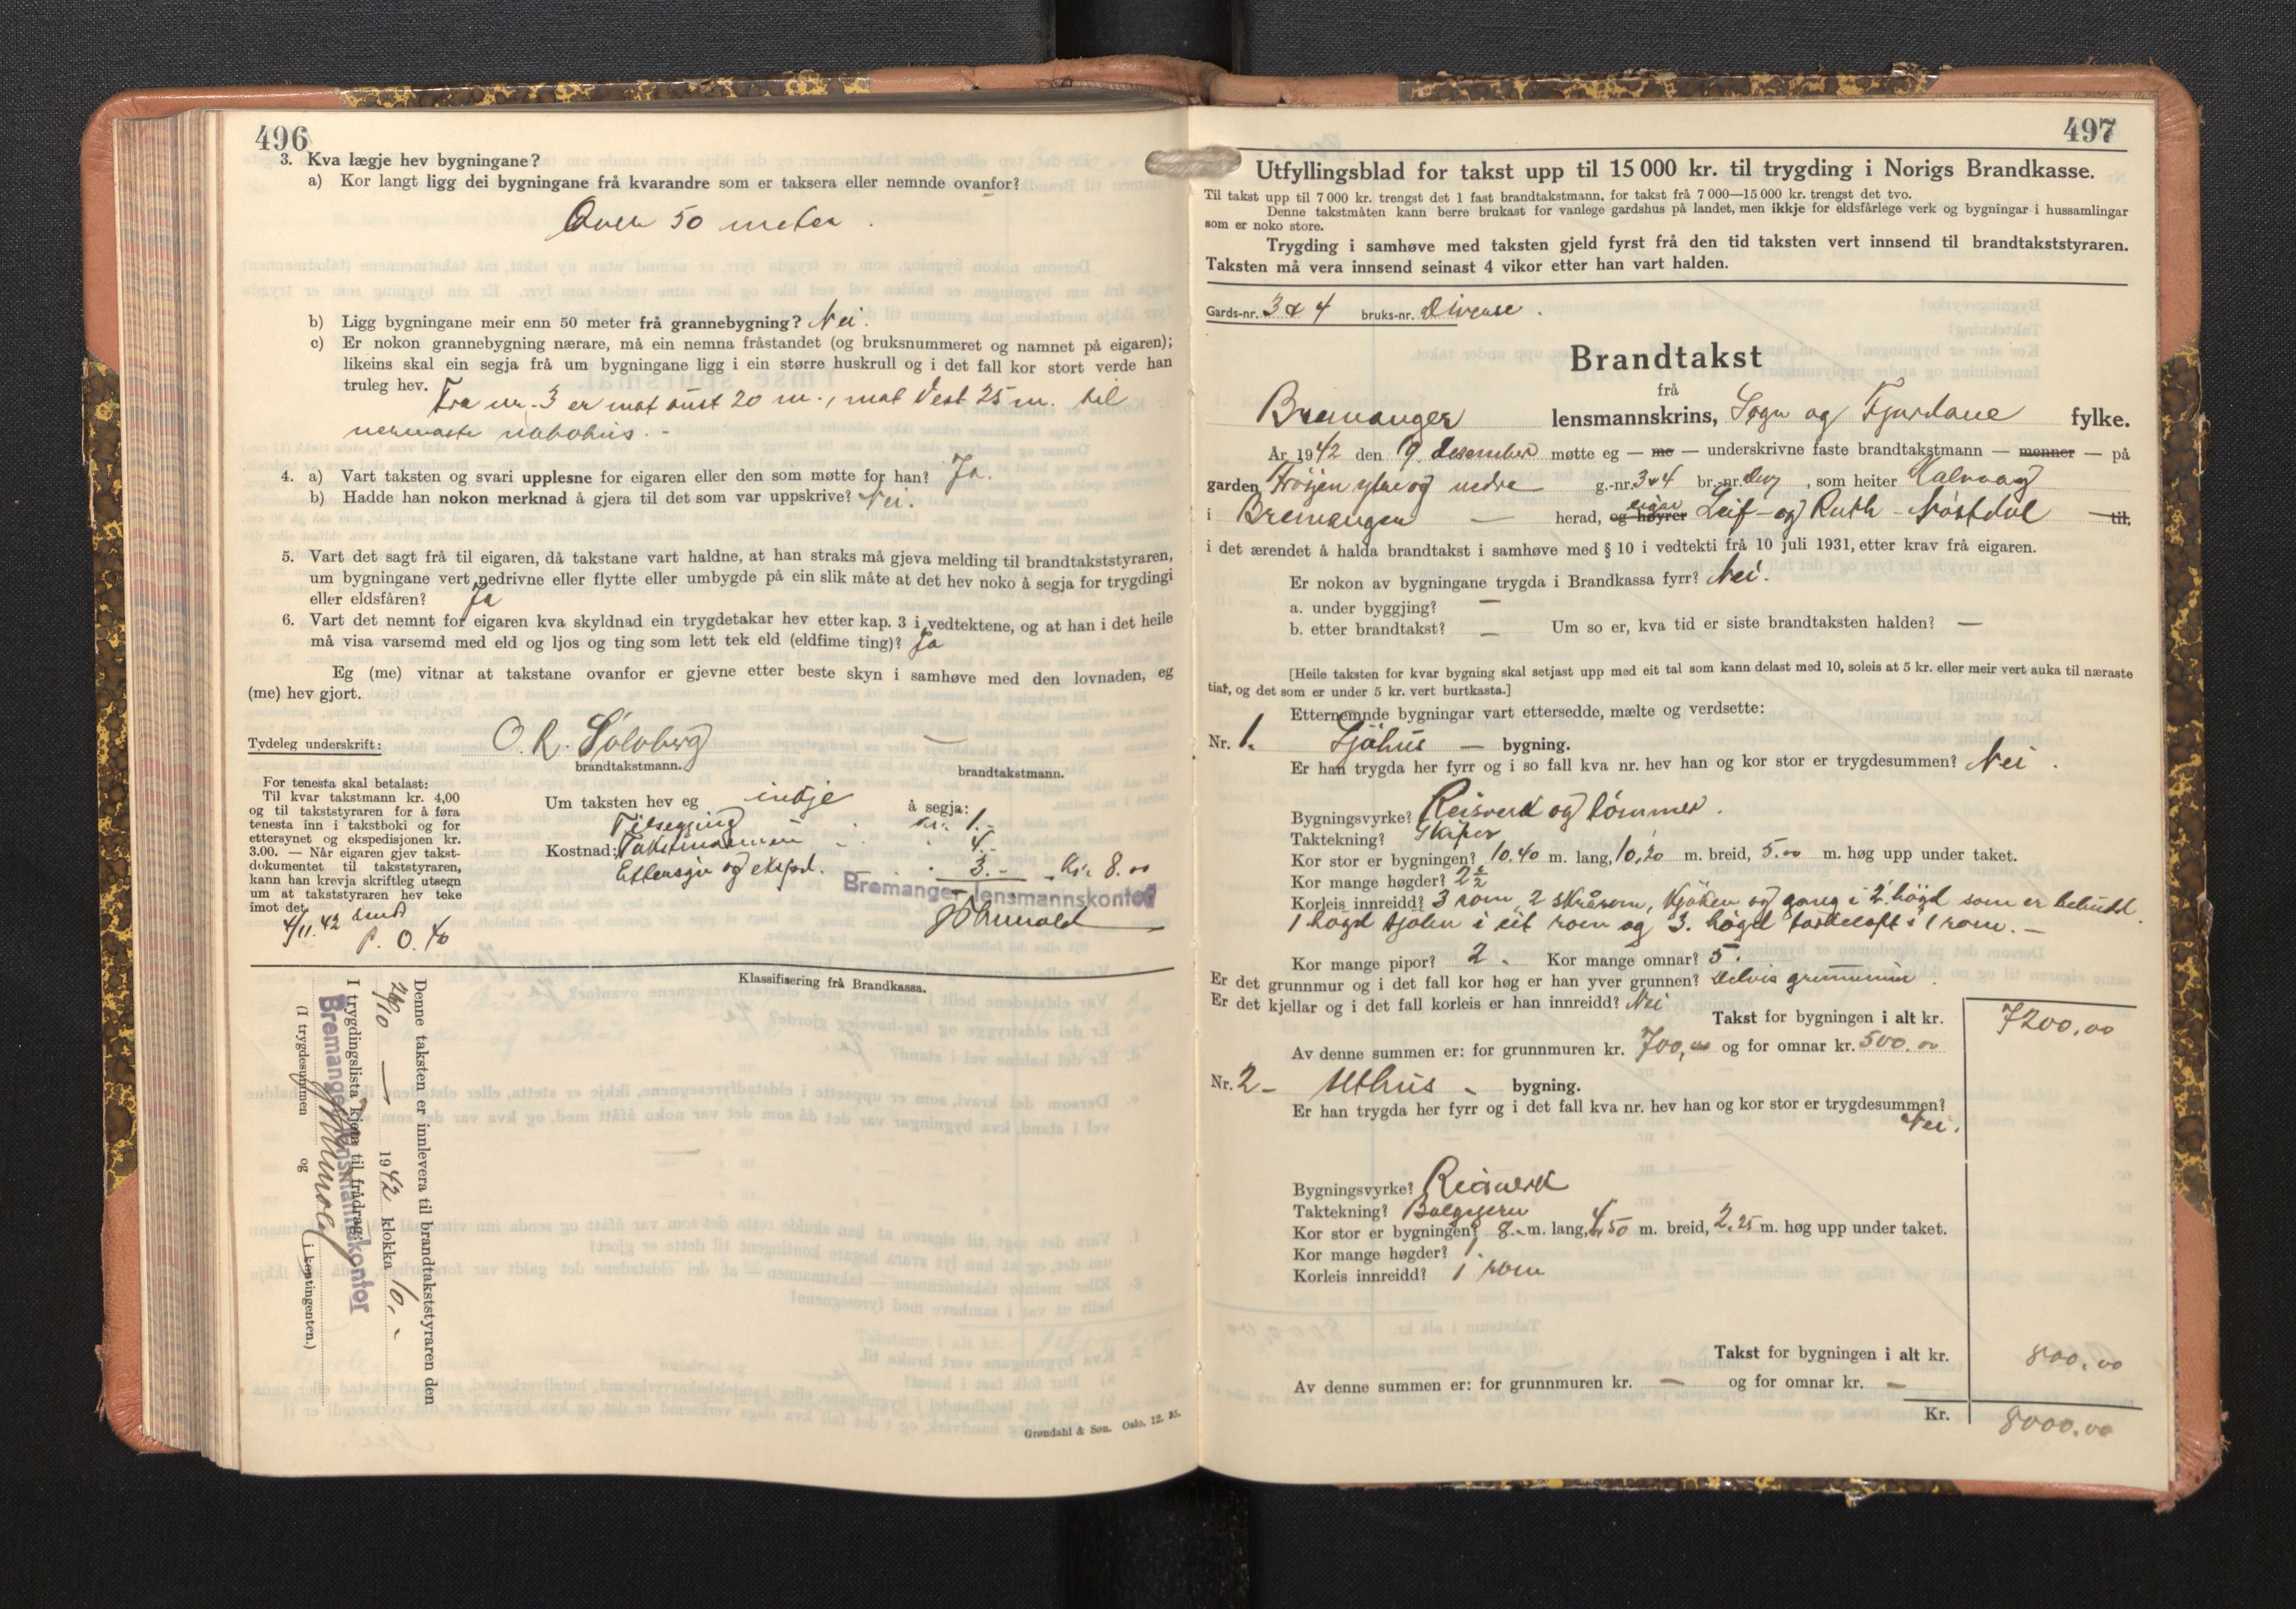 496
3. Kva lægje hev bygningane?
a) Kor langt ligg dei bygningane frå kvarandre som er taksera eller nemnde ovanfor?
Over 50 meter.
b) Ligg bygningane meir enn 50 meter frå grannebygning? Nei.
c) Er nokon grannebygning nærare, må ein nemna fråstandet (og bruksnummeret og namnet på eigaren);
likeins skal ein segja frå um bygningane ligg i ein større huskrull og i det fall kor stort verde han
truleg hev. Fra nr. 3 er mot aust 20 m., mot Vest 25 m. til
nermaste nabohus. -
4. a) Vart taksten og svari upplesne for eigaren eller den som møtte for han? Ja.
b) Hadde han nokon merknad å gjera til det som var uppskrive? Nei.
5. Vart det sagt frå til eigaren, då takstane vart haldne, at han straks må gjeva melding til brandtakststyraren,
um bygningane vert nedrivne eller flytte eller umbygde på ein slik måte at det hev noko å segja for trygdingi
eller eldsfåren? Ja
6. Vart det nemnt for eigaren kva skyldnad ein trygdetakar hev etter kap. 3 i vedtektene, og at han i det heile
må visa varsemd med eld og ljos og ting som lett tek eld (eldfime ting)? Ja
Eg (me) vitnar at takstane ovanfor er gjevne etter beste skyn i samhøve med den lovnaden, eg
(me) hev gjort.
Tydeleg underskrift: O. R. Solvberg —
brandtakstmann. brandtakstmann.
For tenesta skal betalast:
Til kvar takstmann kr. 4,00
og til takststyraren for å føra
tenesta inn i takstboki og for
ettersynet og ekspedisjonen kr.
3.00. — Når eigaren gjev takst-
dokumentet til takststyraren,
kann han krevja skriftleg utsegn
um at takststyraren hev teke
imot det.
4/11. 42 send
P. O. 40
Um taksten hev eg intje å segja:
Tilsegjing kr. 1.-
Kostnad: Takstmannen - 4.-
Ettersyn og eksped. 3.- - kr. 8.00
Bremanger lensmannskontor
Klassifisering frå Brandkassa.
Denne taksten er innlevera til brandtakststyraren den
26/10 — 1942 klokka 10. -
I trygdingslista kjem til frådrag:
Bremanger lensmannskontor
(I trygdesummen og i kontingenten.)
Grøndahl & Søn. Oslo. 12. 35.
497
Utfyllingsblad for takst upp til 15 000 kr. til trygding i Norigs Brandkasse.
Til takst upp til 7 000 kr. trengst det 1 fast brandtakstmann, for takst frå 7 000—15 000 kr. trengst det tvo.
Denne takstmåten kann berre brukast for vanlege gardshus på landet, men ikkje for eldsfårlege verk og bygningar i hussamlingar
som er noko store.
Trygding i samhøve med taksten gjeld fyrst frå den tid taksten vert innsend til brandtakststyraren.
Taksten må vera innsend seinast 4 vikor etter han vart halden.
Gards-nr. 3 & 4 bruks-nr. Diverse.
Brandtakst
frå
Bremanger lensmannskrins, Sogn og Fjordane fylke.
År 1942 den 19 desember møtte eg — me — underskrivne faste brandtakstmann — menner — på
garden ytre og nedre g.-nr. 3 & 4 br.-nr. div , som heiter Kalvaag
i Bremanger — herad, og høyrer eigar Leif - og Ruth - Nøstdal til,
i det ærendet å halda brandtakst i samhøve med § 10 i vedtekti frå 10 juli 1931, etter krav frå eigaren.
Er nokon av bygningane trygda i Brandkassa fyrr? Nei.
a. under byggjing? —
b. etter brandtakst? — Um so er, kva tid er siste brandtaksten halden? —
[Heile taksten for kvar bygning skal setjast upp med eit tal som kann delast med 10, soleis at 5 kr. eller meir vert auka til næraste
tiar, og det som er under 5 kr. vert burtkasta.]
Etternemnde bygningar vart ettersedde, mælte og verdsette:
Nr. 1. Sjøhus — bygning.
Er han trygda her fyrr og i so fall kva nr. hev han og kor stor er trygdesummen? Nei.
Bygningsvyrke? Reisverk og tømmer.
Taktekning? Skifer
Kor stor er bygningen? 10.40 m. lang, 10,20 m. breid, 5.00 m. høg upp under taket.
Kor mange høgder? 2 ½
Korleis innreidd? 3 rom, 2 skrårom, kjøken og gang i 2. høgd som er bebudd.
1 høgd sjøbu i eit rom og 3. høgd i 1 rom. -
Kor mange pipor? 2. Kor mange omnar? 5.
Er det grunnmur og i det fall kor høg er han yver grunnen? Delvis grunnmur.
Er det kjellar og i det fall korleis er han innreidd? Nei
Takst for bygningen i alt kr. 7200.00
Av denne summen er: for grunnmuren kr. 700,00 og for omnar kr. 500.00
Nr. 2 - Uthus - bygning.
Er han trygda her fyrr og i det fall kva nr. hev han og kor stor er trygdesummen?
Nei.
Bygningsvyrke? Reisverk
Taktekning? Bølgjern
Kor stor er bygningen? 8.- m. lang, 4,50 m. breid, 2.25 m. høg upp under taket.
Kor mange høgder? 1.
Korleis innreidd? 1 rom
Takst for bygningen i alt kr. 800.00
Av denne summen er: for grunnmuren kr. — og for omnar kr. —
Kr. 8000.00